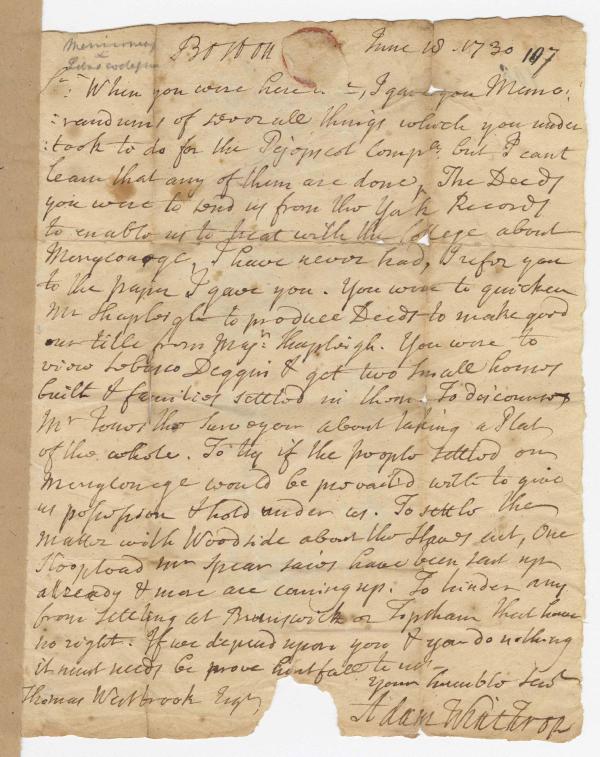 Merriconeag
&
Boston June 18. 1730 107
Sr. When you were here, I gave you Memo:
:randums of severall things which you under
:took to do for the Pejepscot Compa. but I cant
learn that any of them are done, The Deeds
you were to send us from the York Records
to enable us to treat with the College about
Merryconege, I have never had, I refer you
to the paper I gave you. You were to quicken
Mr Shapleigh to produce Deeds to make good
our title from Majr. Shapleigh. You were to
view Sebasco Deggin & get two small houses
built & families settled in them. To discourse
Mr Jones the Surveyor about taking a Plat
of the whole. To try if the people settled on
Meryconege would be prevail'd with to give
us possession & hold under us. To settle the
Matter with Woodside about the Staves cut, One
Sloopload Mr Spear saies have been sent up
already & more are coming up. To hinder any
from settling at Brunswick or Topsham that have
no right. If we depend upon you & you do nothing
it must needs be prove hurtfull to us.
Your humble Servt
Thomas Westbrook Esqr
Adam Winthrop